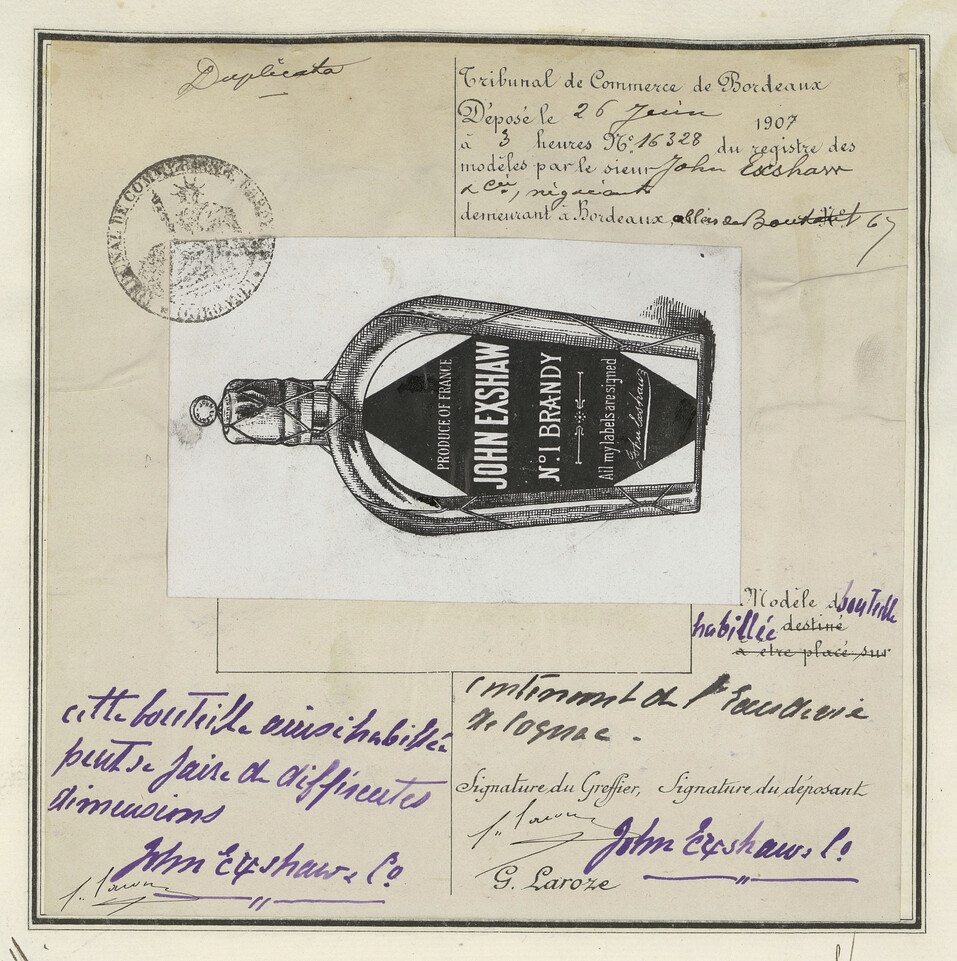 Duplicata
Tribunal de Commerce de Bordeaux
Déposé le 26 Juin 1907
à 3 heures N° 16328 du registre des
modèles par le sieur John Exshaw
& Cie, négociants
demeurant à Bordeaux, allées de Boutaut N° 67
TRIBUNAL DE COMMERCE
PRODUCE OF FRANCE
JOHN EXSHAW
N° 1 BRANDY
All my labels are signed
John Exshaw
Modèle de bouteille
habillée destiné
à être placé sur
contenant de l'Eau de vie
de Cognac.
cette bouteille ainsi habillée
peut se faire de différentes
dimensions
John Exshaw & Co
Signature du Greffier, Signature du déposant
John Exshaw & Co
G. Laroze